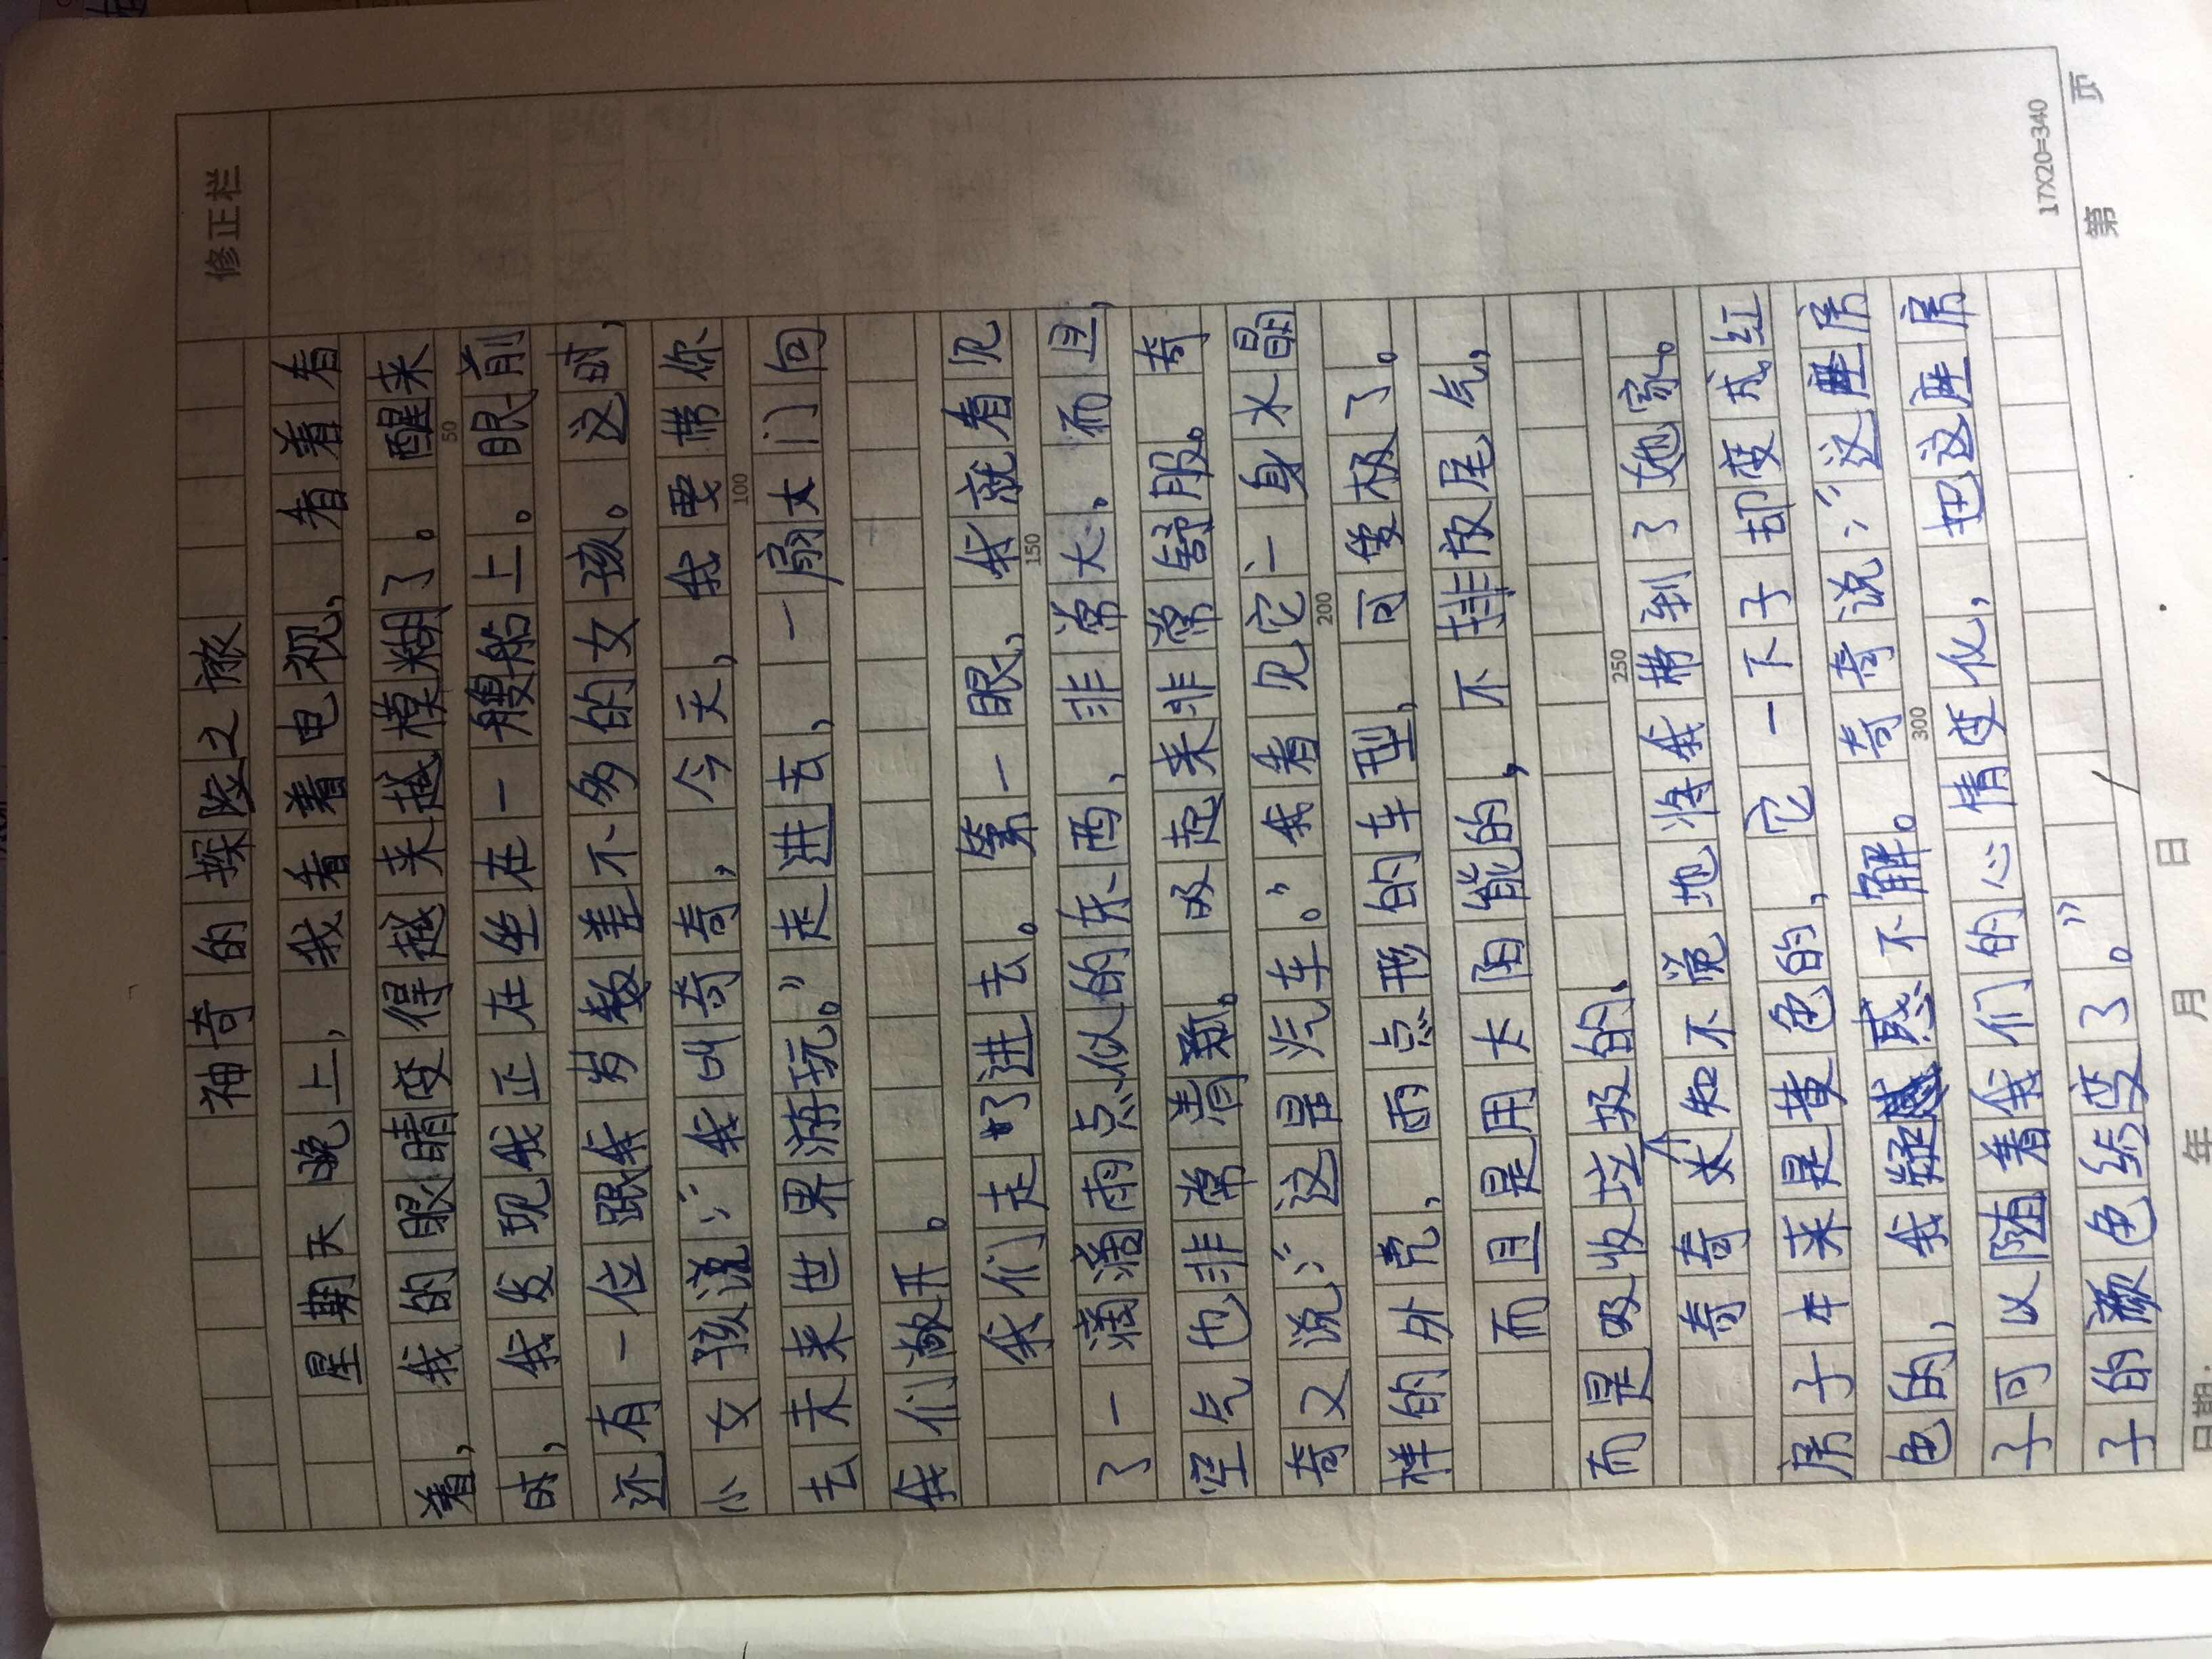 修正栏
神奇的探险之旅
星期天晚上，我看着电视，看着看
着，我的眼睛变得越来越模糊了。醒来
时，我发现我正在坐在一艘船上。眼前
还有一位跟我岁数差不多的女孩。这时，
小女孩说：“我叫奇奇，今天，我要带你
去未来世界游玩。”走进去，一扇大门向
我们敞开。
我们走了进去。第一眼，我就看见
了一滴滴雨点似的东西，非常大。而且，
空气也非常清新。吸起来非常舒服。奇
奇又说：“这是汽车。”我看见它一身水晶
样的外壳，雨点形的车型，可爱极了。
而且是用太阳能的，不排放尾气，
而是吸收垃圾的。
奇奇不知不觉地将我带到了她家。
房子本来是黄色的，它一下子却变成红
色的，我疑惑不解。奇奇说：“这座房
子可以随着我们的心情变化，把这座房
子的颜色给变了。”
50
100
150
200
250
300
17X20=340
日期： 年 月 日
第 页